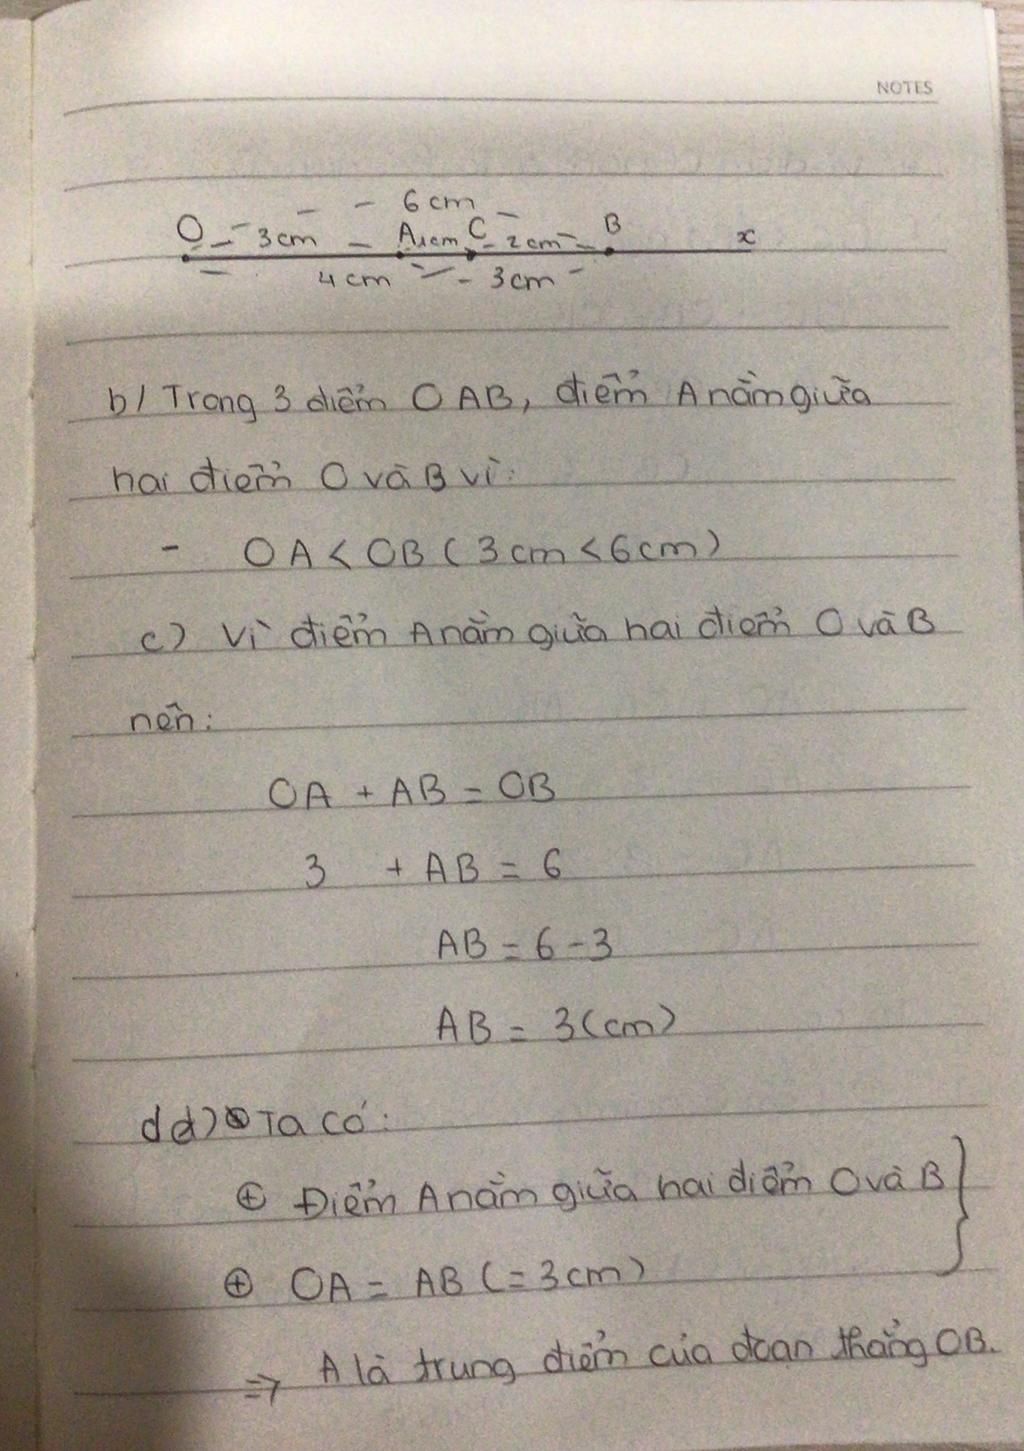 NOTES
6cm
O 3cm A 1cm C 2cm B x
4cm 3cm
b/ Trong 3 điểm O AB, điểm A nằm giữa
hai điểm O và B vì:
- OA < OB ( 3cm < 6cm )
c) Vì điểm A nằm giữa hai điểm O và B
nên:
OA + AB = OB
3 + AB = 6
AB = 6 - 3
AB = 3 (cm)
d d) Ta có:
⊕ Điểm A nằm giữa hai điểm O và B
⊕ OA = AB ( = 3cm )
=> A là trung điểm của đoạn thẳng OB.